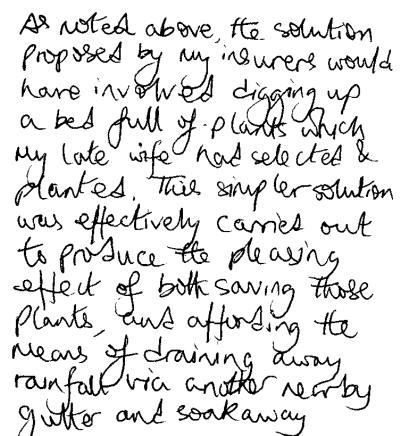 As noted above, the solution
proposed by my insurers would
have involved digging up
a bed full of plants which
my late wife had selected &
planted. This simpler solution
was effectively carried out
to produce the pleasing
effect of both saving those
plants, and affording the
means of draining away
rainfall via another nearby
gutter and soakaway